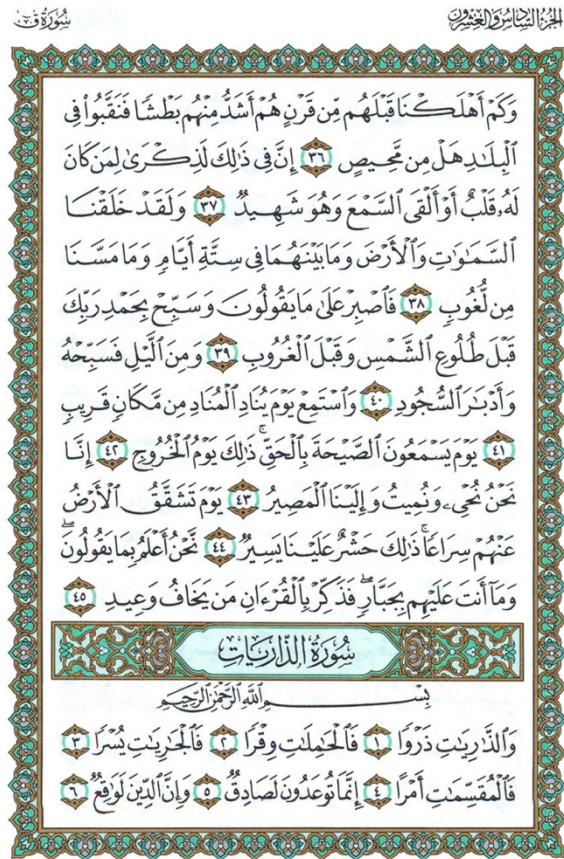 سُورَةُ ق
الجُزْءُ السَّادِسُ وَالعِشْرُونَ
وَكَمْ أَهْلَكْنَا قَبْلَهُم مِّن قَرْنٍ هُمْ أَشَدُّ مِنْهُم بَطْشًا فَنَقَّبُوا۟ فِى
ٱلْبِلَٰدِ هَلْ مِن مَّحِيصٍ ٣٦ إِنَّ فِى ذَٰلِكَ لَذِكْرَىٰ لِمَن كَانَ
لَهُۥ قَلْبٌ أَوْ أَلْقَى ٱلسَّمْعَ وَهُوَ شَهِيدٌ ٣٧ وَلَقَدْ خَلَقْنَا
ٱلسَّمَٰوَٰتِ وَٱلْأَرْضَ وَمَا بَيْنَهُمَا فِى سِتَّةِ أَيَّامٍ وَمَا مَسَّنَا
مِن لُّغُوبٍ ٣٨ فَٱصْبِرْ عَلَىٰ مَا يَقُولُونَ وَسَبِّحْ بِحَمْدِ رَبِّكَ
قَبْلَ طُلُوعِ ٱلشَّمْسِ وَقَبْلَ ٱلْغُرُوبِ ٣٩ وَمِنَ ٱلَّيْلِ فَسَبِّحْهُ
وَأَدْبَٰرَ ٱلسُّجُودِ ٤٠ وَٱسْتَمِعْ يَوْمَ يُنَادِ ٱلْمُنَادِ مِن مَّكَانٍ قَرِيبٍ
٤١ يَوْمَ يَسْمَعُونَ ٱلصَّيْحَةَ بِٱلْحَقِّ ۚ ذَٰلِكَ يَوْمُ ٱلْخُرُوجِ ٤٢ إِنَّا
نَحْنُ نُحْىِۦ وَنُمِيتُ وَإِلَيْنَا ٱلْمَصِيرُ ٤٣ يَوْمَ تَشَقَّقُ ٱلْأَرْضُ
عَنْهُمْ سِرَاعًا ۚ ذَٰلِكَ حَشْرٌ عَلَيْنَا يَسِيرٌ ٤٤ نَّحْنُ أَعْلَمُ بِمَا يَقُولُونَ ۖ
وَمَآ أَنتَ عَلَيْهِم بِجَبَّارٍ ۖ فَذَكِّرْ بِٱلْقُرْءَانِ مَن يَخَافُ وَعِيدِ ٤٥
سُورَةُ الذَّارِيَاتِ
بِسْمِ ٱللَّهِ ٱلرَّحْمَٰنِ ٱلرَّحِيمِ
وَٱلذَّٰرِيَٰتِ ذَرْوًا ١ فَٱلْحَٰمِلَٰتِ وِقْرًا ٢ فَٱلْجَٰرِيَٰتِ يُسْرًا ٣
فَٱلْمُقَسِّمَٰتِ أَمْرًا ٤ إِنَّمَا تُوعَدُونَ لَصَادِقٌ ٥ وَإِنَّ ٱلدِّينَ لَوَٰقِعٌ ٦